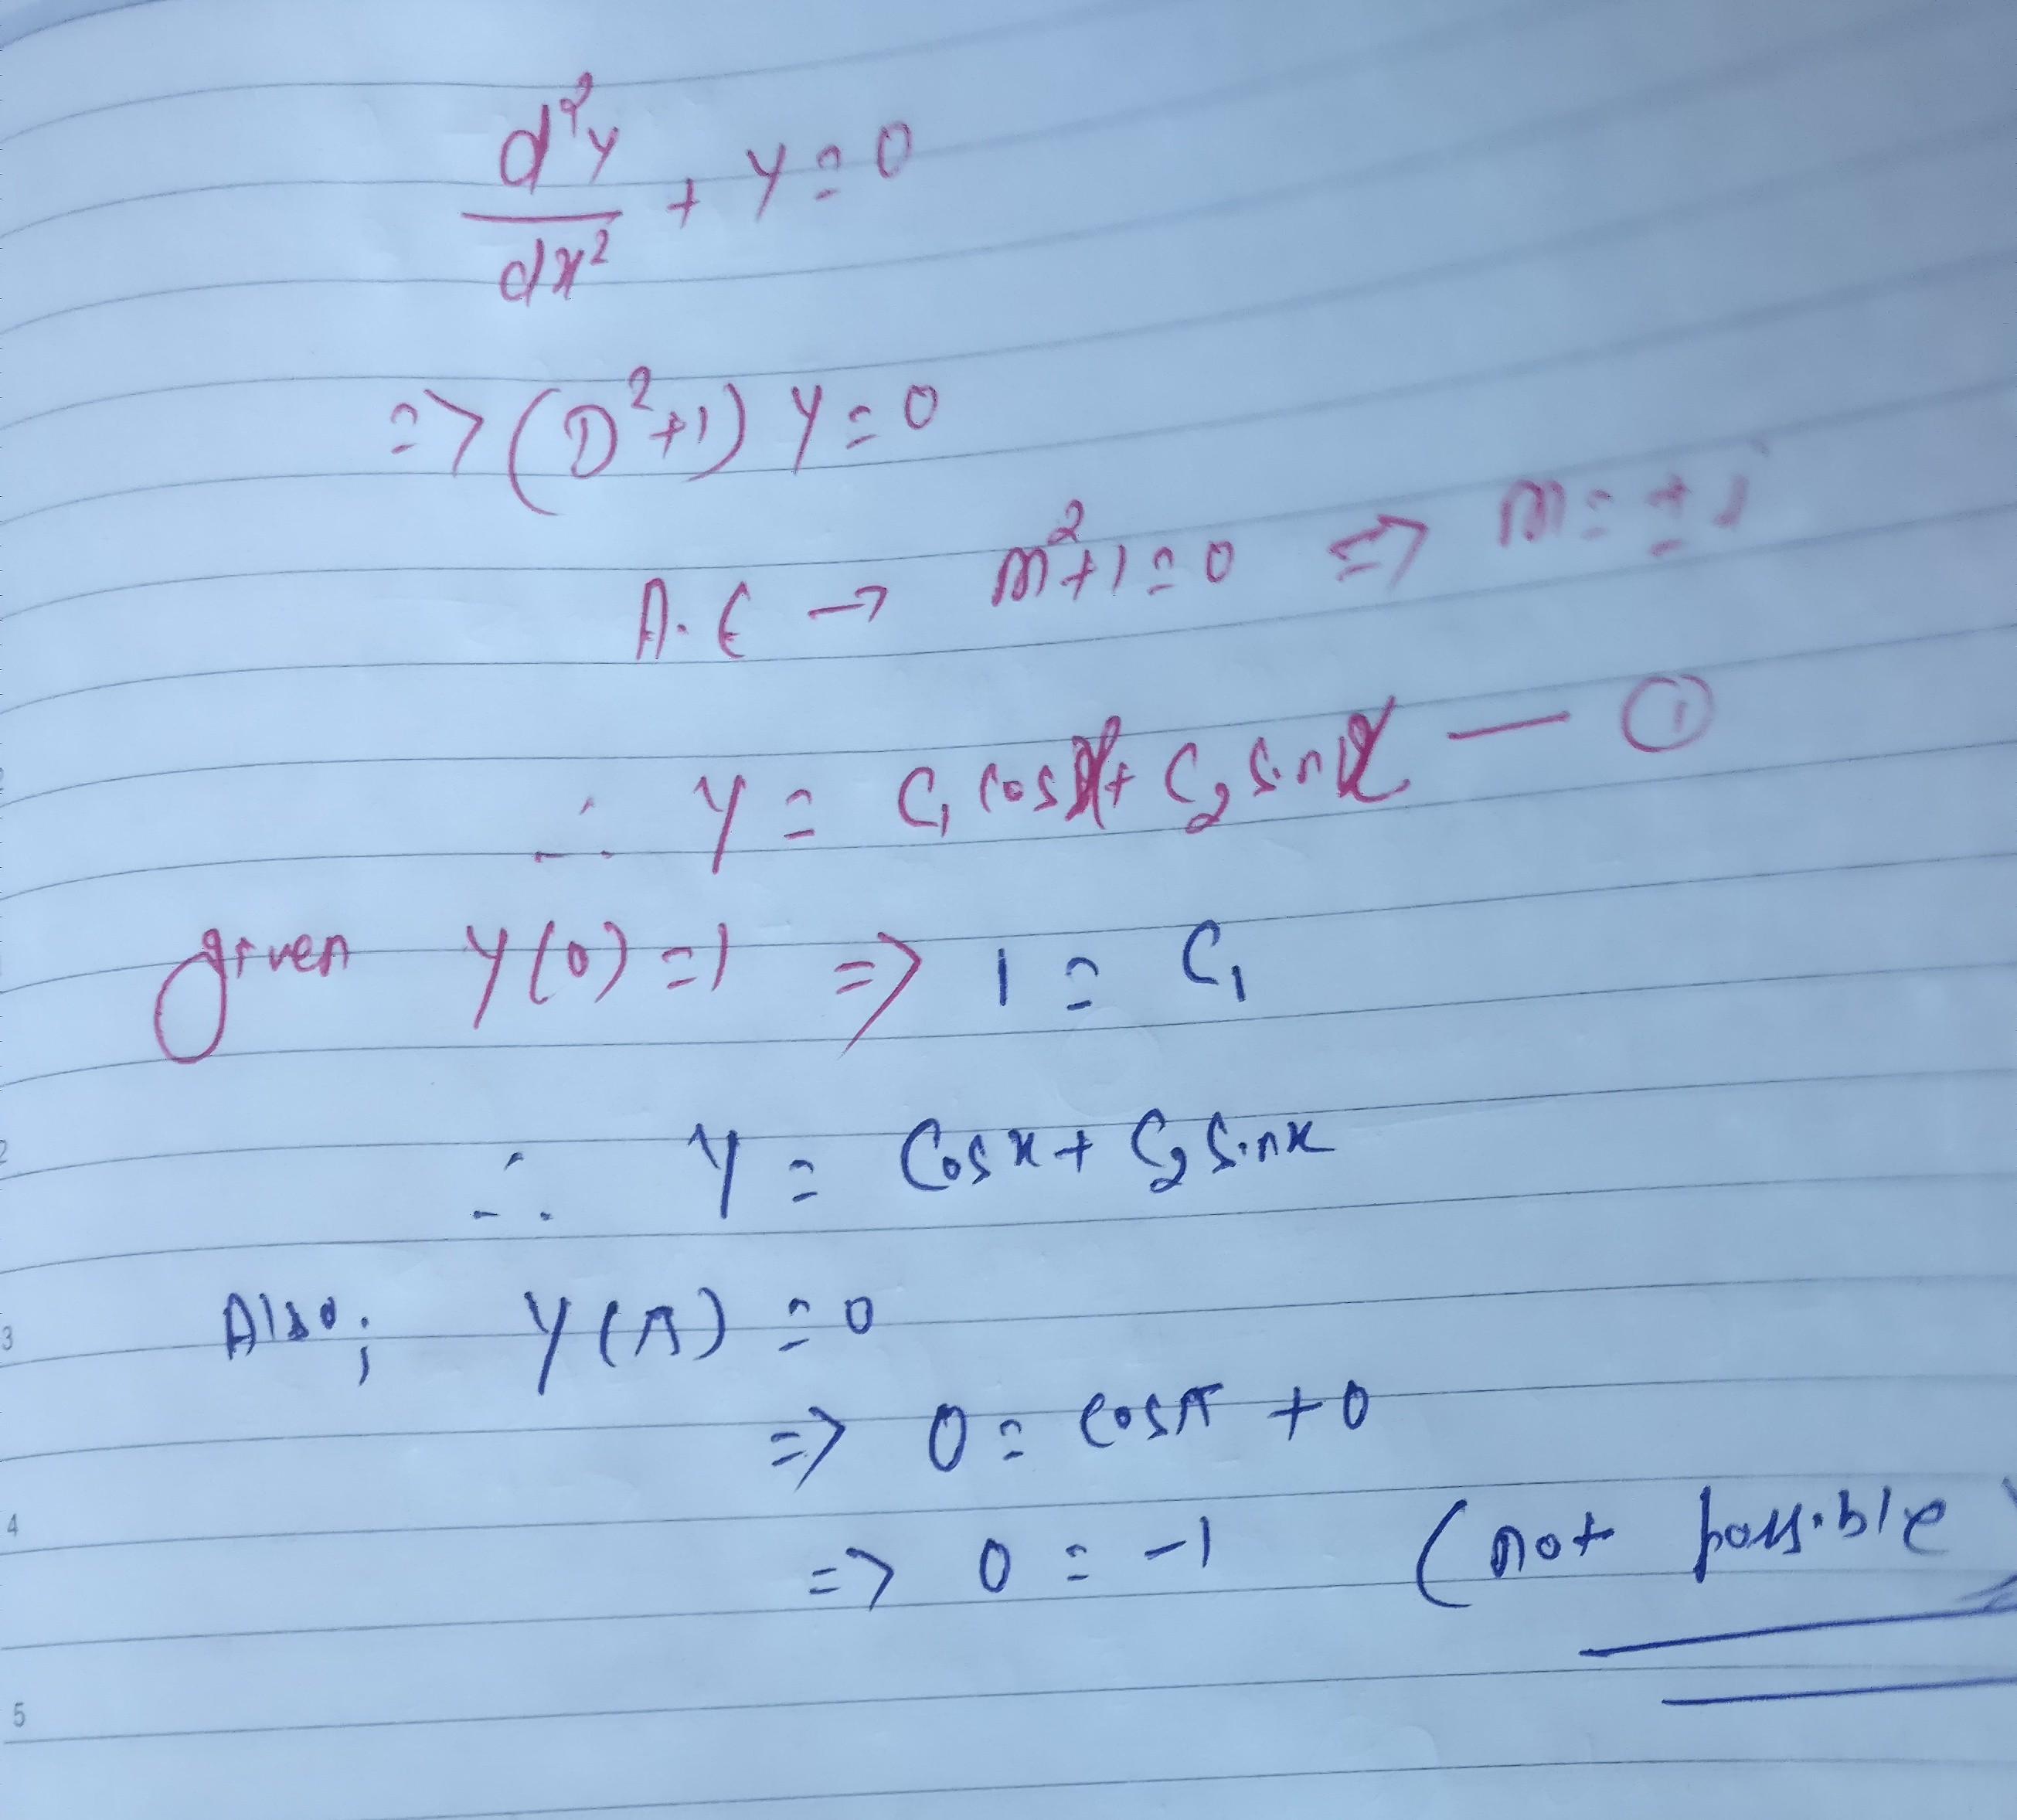 d²y/dx² + y = 0
=> (D²+1) y = 0
A.E → m²+1 = 0 => m = ±i
∴ y = C₁ cosx + C₂ sinx — ①
given y(0) = 1 => 1 = C₁
∴ y = Cosx + C₂ sinx
Also; y(π) = 0
=> 0 = cosπ + 0
=> 0 = -1 (not possible)
2
3
4
5